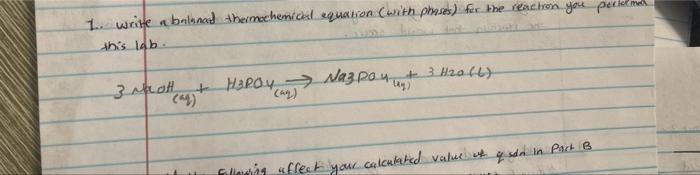 1. write a balanad thermochemical equation (with phases) for the reaction you performed
this lab.
3 NaOH (aq) + H3PO4 (aq) → Na3PO4 (aq) + 3 H2O (l)
following affect your calculated value of q sdn in Part B